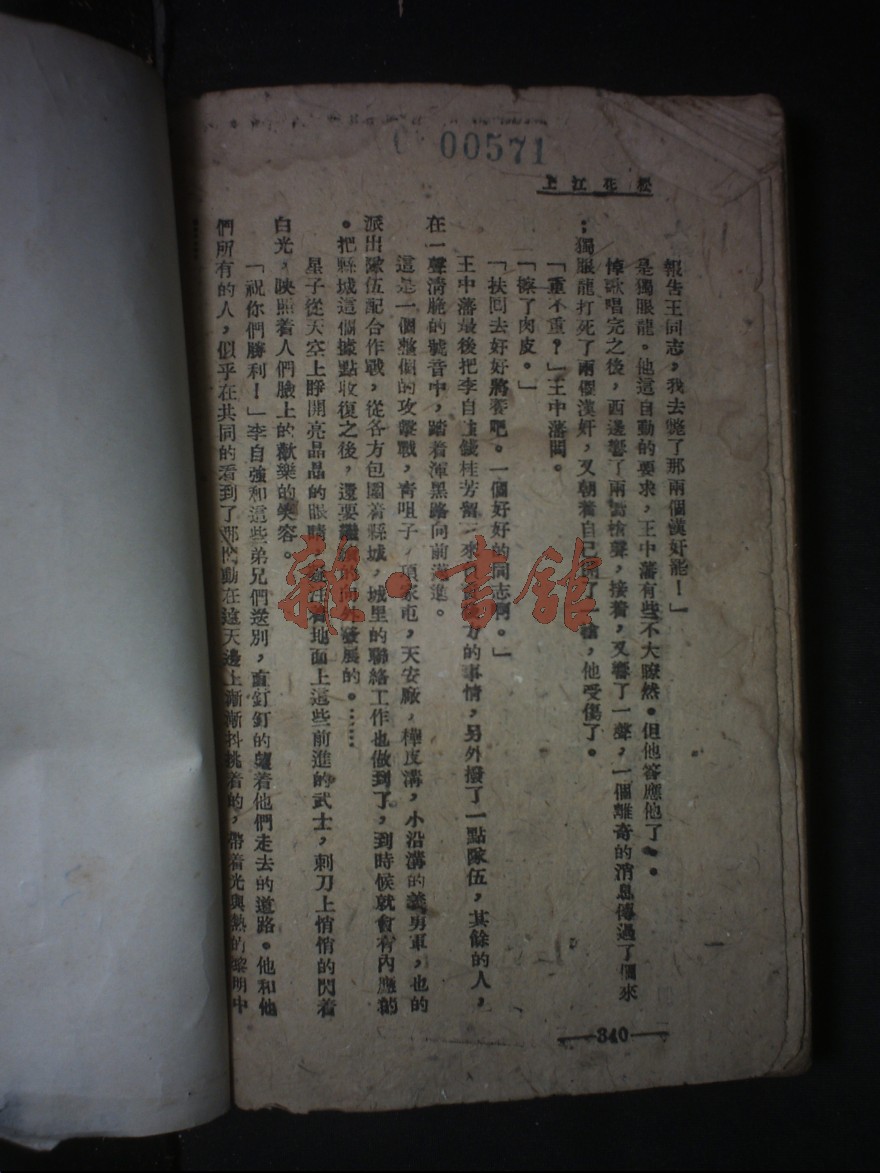 00571
松花江上
報告王同志，我去斃了那兩個漢奸罷！」
是獨眼龍。他這自動的要求，王中藩有些不大瞭然。但他答應他了。
悼歌唱完之後，西邊響了兩點槍聲，接着，又響了一聲，一個離奇的消息傳過了個來
；獨眼龍打死了兩個漢奸，又朝着自己開了一槍，他受傷了。
「重不重？」王中藩問。
「擦了肉皮。」
「扶回去好好將養吧。一個好好的同志啊。」
王中藩最後把李自強錢桂芳留下來 方的事情，另外撥了一點隊伍，其餘的人，
在一聲清脆的號音中，踏着渾黑路向前滿進。
這是一個整個的攻擊戰，青咀子，頂家屯，天安廠，樺皮溝，小沿溝的義勇軍，也的
派出隊伍配合作戰，從各方包圍着縣城，城里的聯絡工作也做到了，到時候就會有內應的
。把縣城這個據點收復之後，還要繼續的向外發展的。……
星子從天空上睜開亮晶晶的眼睛， 着地面上這些前進的武士，刺刀上悄悄的閃着
白光，映照着人們臉上的歡樂的笑容。
「祝你們勝利！」李自強和這些弟兄們送別，直釘釘的望着他們走去的道路。他和他
們所有的人，似乎在共同的看到了那閃動在遠天邊上漸漸抖挑着的，帶着光與熱的黎明中
……
—340—
雜·書館